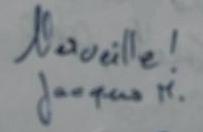 Merveille!
Jacques M.